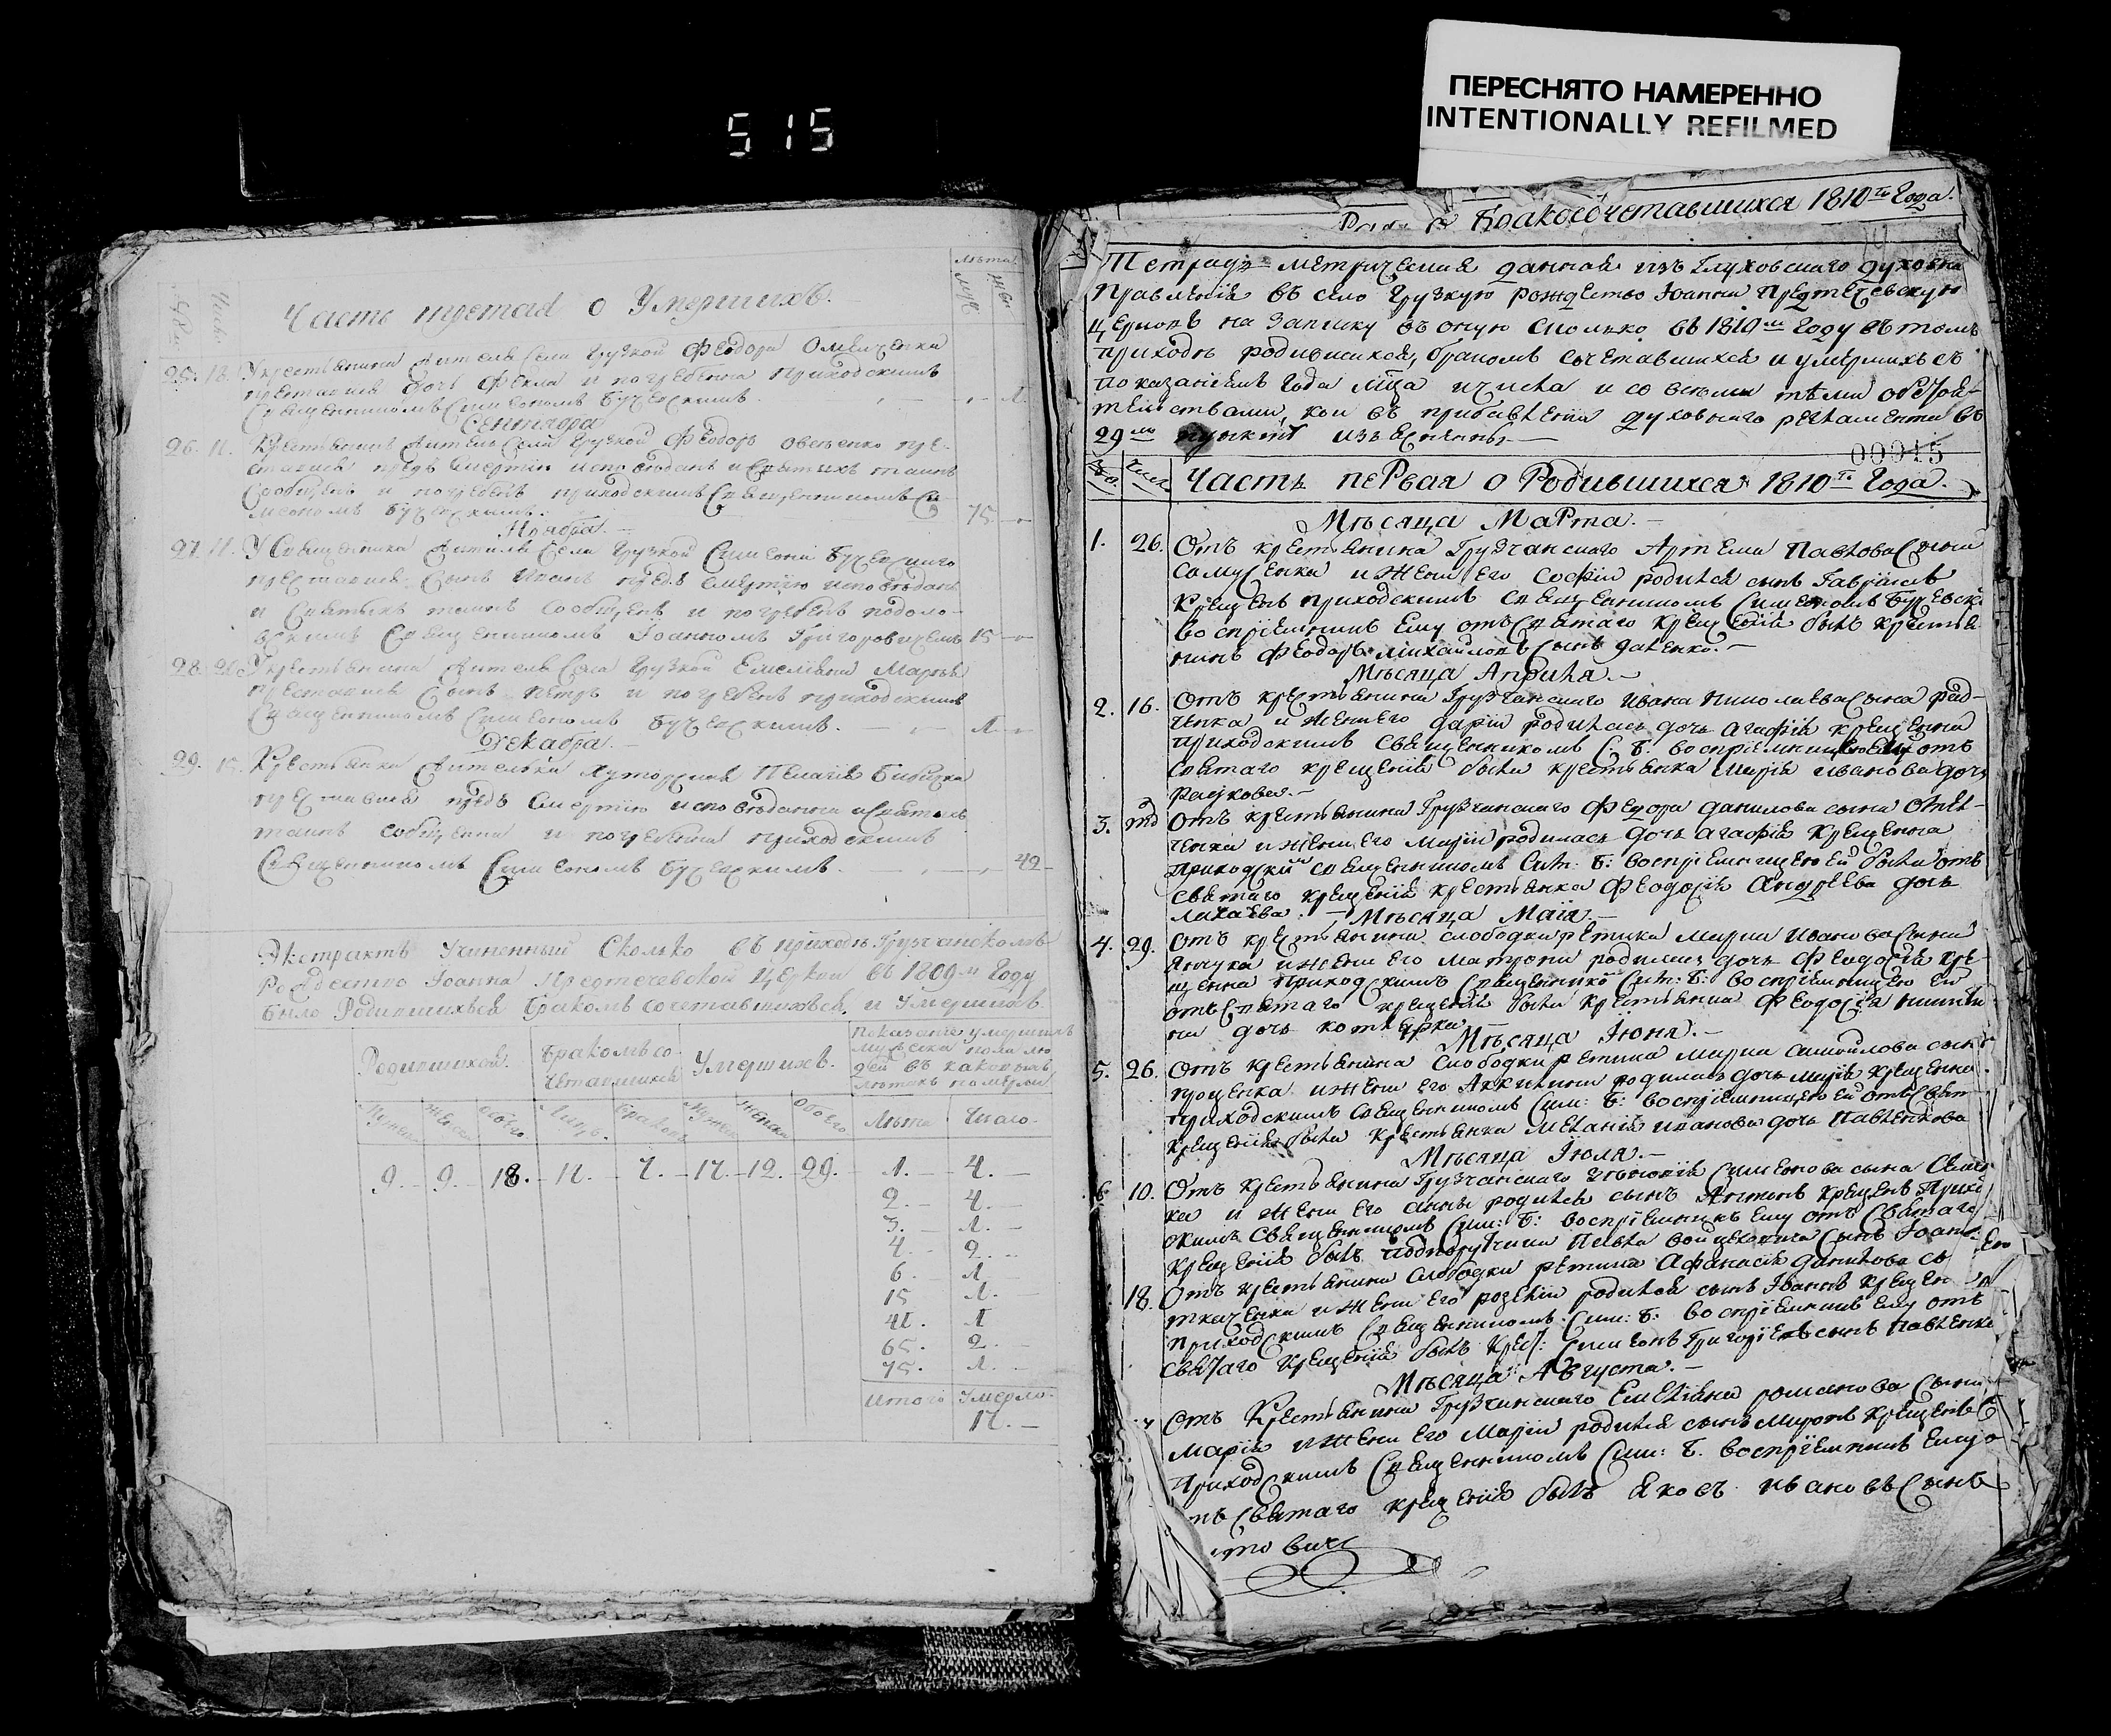 515
ПЕРЕСНЯТО НАМЕРЕННО
INTENTIONALLY REFILMED
Лѣта
Часть третая о Умершихъ.
25. 18. Укрестьянина жителя села Грузкой Феодора Омелченка
преставися дочь Фекла и погребенна приходскимъ
Священникомъ Симеономъ Бучевскимъ. 1.
Сентября
26. 11. Крестьянинъ житель села Грузкой Феодоръ Овсѣенко пре-
ставися предъ смертію исповѣданъ и святыхъ таинъ
сообщенъ и погребенъ приходскимъ Священникомъ Си-
меономъ Бучевскимъ. 75.
Ноября.
27. 11. У Священника жителя села Грузкой Симеона Бучевскаго
преставися сынъ Иванъ предъ смертію исповѣданъ
и святыхъ таинъ сообщенъ и погребенъ подоло-
вскимъ Священникомъ Іоанномъ Григоровичемъ 15
28. 20. Укрестьянина жителя села Грузкой Емеліана
преставися сынъ Петръ и погребенъ приходскимъ
Священникомъ Симеономъ Бучевскимъ. 1.
Декабря.
29. Крестьянка жителька хуторская Пелагія
преставися предъ смертію исповѣданна и святыхъ
таинъ сообщенна и погребенна приходскимъ
Священникомъ Симеономъ Бучевскимъ. 42
Экстрактъ Учиненный Сколько въ приходѣ Грузчанскомъ
Рождество Іоанна Предтечевской Церкви въ 1809-м Году
было Родившихься Бракомъ сочетавшихься, и Умершихъ
Родившихся. Бракомъ со-четавшихся Умершихъ. Показаніе умершихъ
мужеска пола лю
дей въ какихъ
лѣтахъ померли
Мужеска Женска Обоего Мужеска Женска Обоего Лѣта Число.
9. 9. 18. 11. 7. 17. 12. 29. 1. 4.
2. 4.
3. 1.
4 2.
6. 1
15 1.
41. 1
65. 2.
75. 1.
Итого Умерло
17.
Бракосочетавшихся 1810го Года.
Тетрадь метрическая данная изъ Глуховскаго духовна
правленія въ село Грузкую рождество Іоанна Предтечевскую
Церковь на записку въ оную сколько въ 1810м Году въ томъ
приходѣ родившихся, бракомъ сочетавшихся и умершихъ съ
показаніемъ Года мца и числа и со всѣми тѣми обстоя-
телствами, кои въ прибавленіи духовнаго регламента въ
29м пунктѣ изъяснены
00015
Часть пеРвая о Родившихся 1810го Года.
Мѣсяца МаРта.
1. 26. Отъ крестьянина Грузчанскаго Артема Павлова сына
Самусенка и жены Его Софіи родился сынъ Гавріилъ
Крещенъ приходскимъ Священникомъ Симеономъ Бучевск
воспріемникъ Ему отъ святаго крещенія былъ крестья-
нинъ Феодоръ Михайловъ сынъ Даценко.
Мѣсяца Априля.
2. 16. Отъ крестьянина Грузчанскаго Ивана Николаева сына Рад-
ченка и жены Его Даріи родилась дочь Агафія крещенна
приходскимъ Священникомъ С. Б. воспріемницею отъ
святаго крещенія была крестьянка Марія Иванова дочь
Радкова.
3. тд Отъ крестьянина Грузчанскаго Федора Данилова сына Омел-
ченка и жены Его Маріи родилась дочь Агафія крещенна
приходским священникомъ Сим: Б: воспріемницею Ей была отъ
святаго крещенія крестьянка Феодосія Андреева дочь
Мѣсяца Маія.
4. 29. Отъ крестьянина слободки Ретика Марка Иванова сына
Янчука и жены Его Матроны родилась дочь Феодосія кре-
щенна приходскимъ священнико Сим: Б: воспріемницею Ей
отъ святаго крещенія была крестьянка Феодосія Никити
на дочь
Мѣсяца Іюня.
5. 26. Отъ крестьянина слободки Ретика Марка Самойлова сына
Проценка и жены Его Аккилины родилась дочь Марія крещенна
приходскимъ священникомъ Сим: Б: воспріемницею Ей отъ свят
крещенія была крестьянка Меланія Иванова дочь Павленкова
Мѣсяца Іюля.
6 10. Отъ крестьянина Грузчанскаго Симеонова сына
ка и жены Его Анны родился сынъ Антонъ крещенъ Прихо
скимъ Священникомъ Сим: Б: воспріемникъ Ему отъ Святаго
крещенія былъ подпоручика Павла сынъ Іоанн
18. Отъ крестьянина слободки Ретика Афанасія Данилова сы
Ткаченка и жены Его родился сынъ Іоаннъ крещен
приходскимъ Священникомъ Сим: Б: воспріемникъ Ему отъ
святаго крещенія былъ крест: Симеонъ Григоріевъ сынъ Павленко
Мѣсяца Августа.
Отъ Крестьянина Грузчанскаго Емеліана Романова сына
и жены Его Маріи родился сынъ Миронъ крещенъ
приходскимъ Священникомъ Сим: Б. воспріемникъ Ему о
тъ святаго крещенія былъ Яковъ Ивановъ сынъ